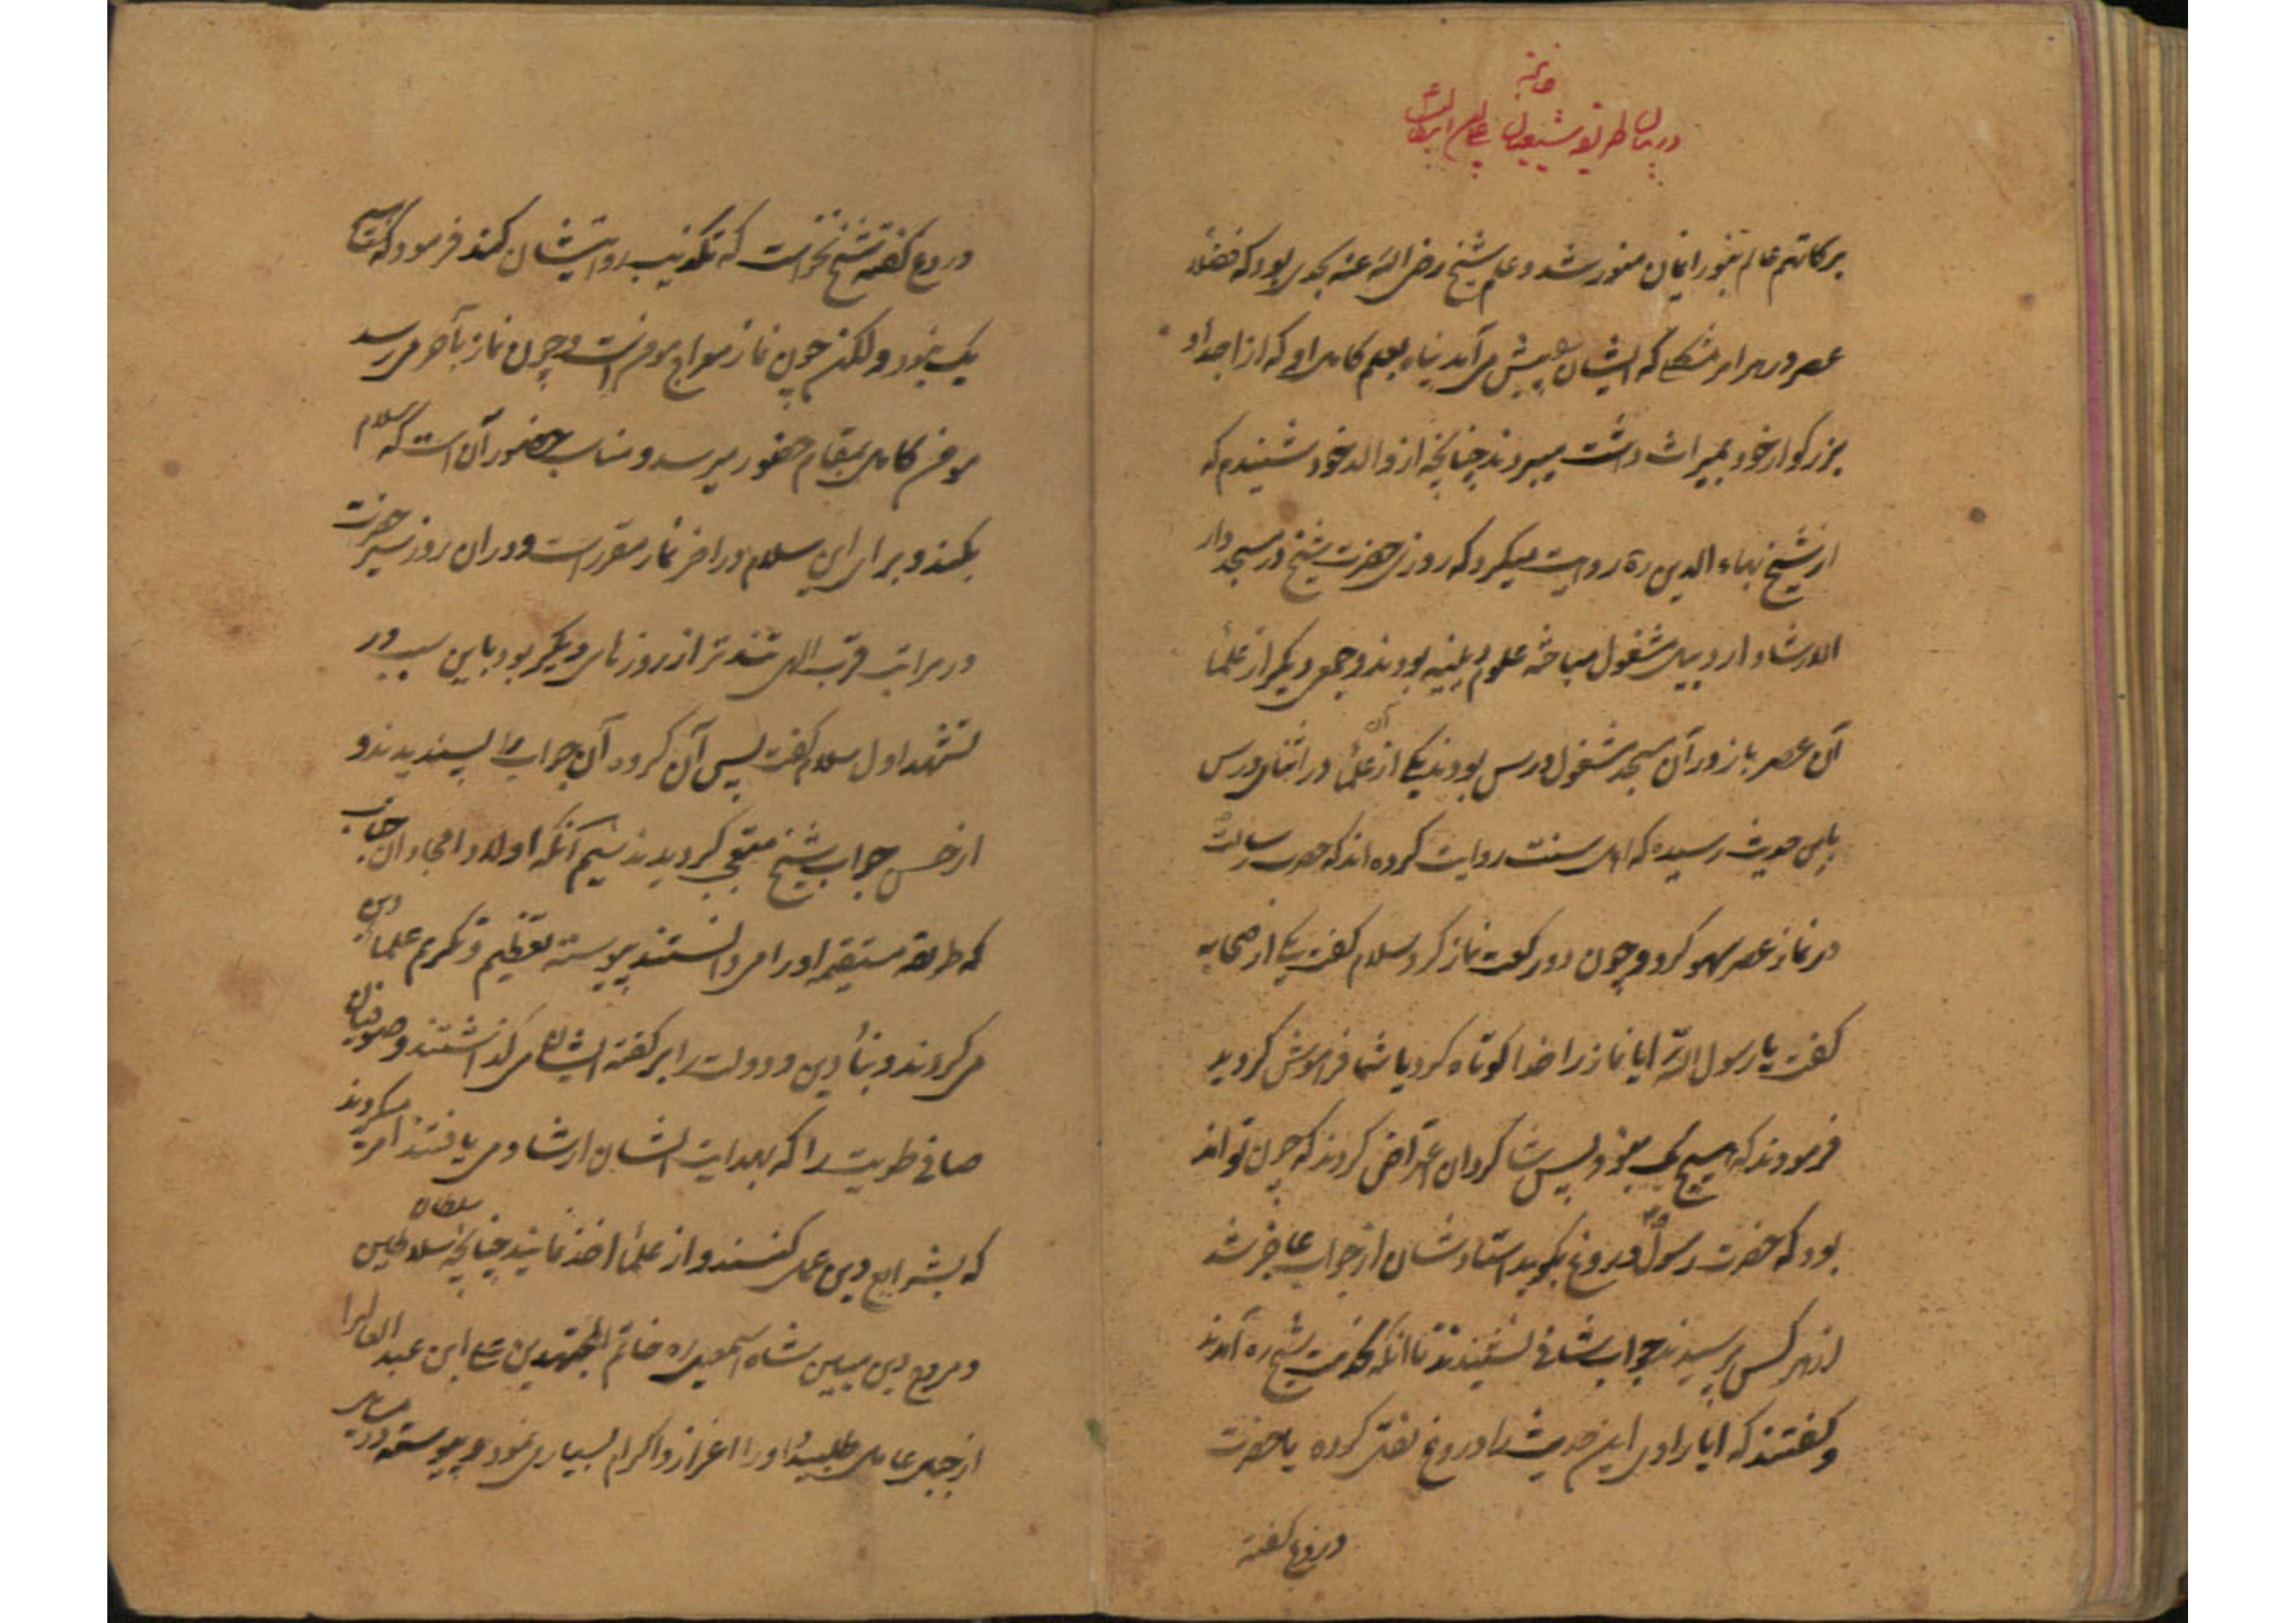 خاتمه
در بیان طریقه شیعیان
برکاتهم عالم بنور ایمان منور شد و علم شیخ رضی الله عنه بحدی بود که فضلاء
عصر در هر امر مشکلی که ایشان را پیش می آمد پناه بعلم کامل او که از اجداد
بزرگوار خود بمیراث داشت میبردند چنانچه از والد خود شنیدم که
از شیخ بهاء الدین ره روایت میکرد که روزی حضرت شیخ در مسجد دار
الارشاد اردبیل مشغول مباحثه علوم دینیه بودند و جمعی دیگر از علمأ
آن عصر باز در آن مسجد مشغول درس بودند یکی از آن علمأ در اثنای درس
باین حدیث رسیده که اهل سنت روایت کرده اند که حضرت رسالت ص
در نماز عصر سهو کرد و چون دو رکعت نماز کرد سلام گفت یکی از صحابه
گفت یا رسول الله ایا نماز را خدا کوتاه کرد یا شما فراموش کردید
فرمودند که هیچ یک نبود پس شاگردان اعتراض کردند که چون تواند
بود که حضرت رسول ص دروغ بگوید استاد شان از جواب عاجز شد
از هر کس پرسیدند جواب شافی نشنیدند تا انکه بخدمت شیخ ره آمدند
و گفتند که ایا راوی این حدیث را دروغ نقل کرده یا حضرت
دروغ گفته
دروغ گفته شیخ نخواست که تکذیب روایتشان کند فرمود که هیچ
یک نبود و لکن چون نماز معراج مومنست و چون نماز بآخر می رسد
مومن کامل بمقام حضور میرسد و مناسب حضور آن است که سلام
بکند و برای این سلام در اخر نماز مقرر است و در ان روز سیر حضرت
در مراتب قرب الهی تندتر از روزهای دیگر بود باین سبب در
تشهد اول سلام گفت پس آن گروه آن جواب را پسندیدند و
از حسن جواب شیخ متعجب گردیدند سیم آنکه اولاد امجاد ان جناب
که طریقه مستقیمه او را می دانستند پیوسته تعظیم و تکریم علماء دین
می کردند و بنأ دین و دولت را بر گفته ایشان می گذاشتند و صوفیان
صافی طویت را که بهدایت ایشان ارشاد می یافتند امر میکردند
که بشرایع دین عمل کنند و از علمأ اخذ نمایند چنانچه سلطان سلاطین
و مروج دین مبین شاه اسمعیل ره خاتم المجتهدین علی ابن عبد العالی را
از جبل عامل طلبیده او را اعزاز و اکرام بسیار می نمود و پیوسته در